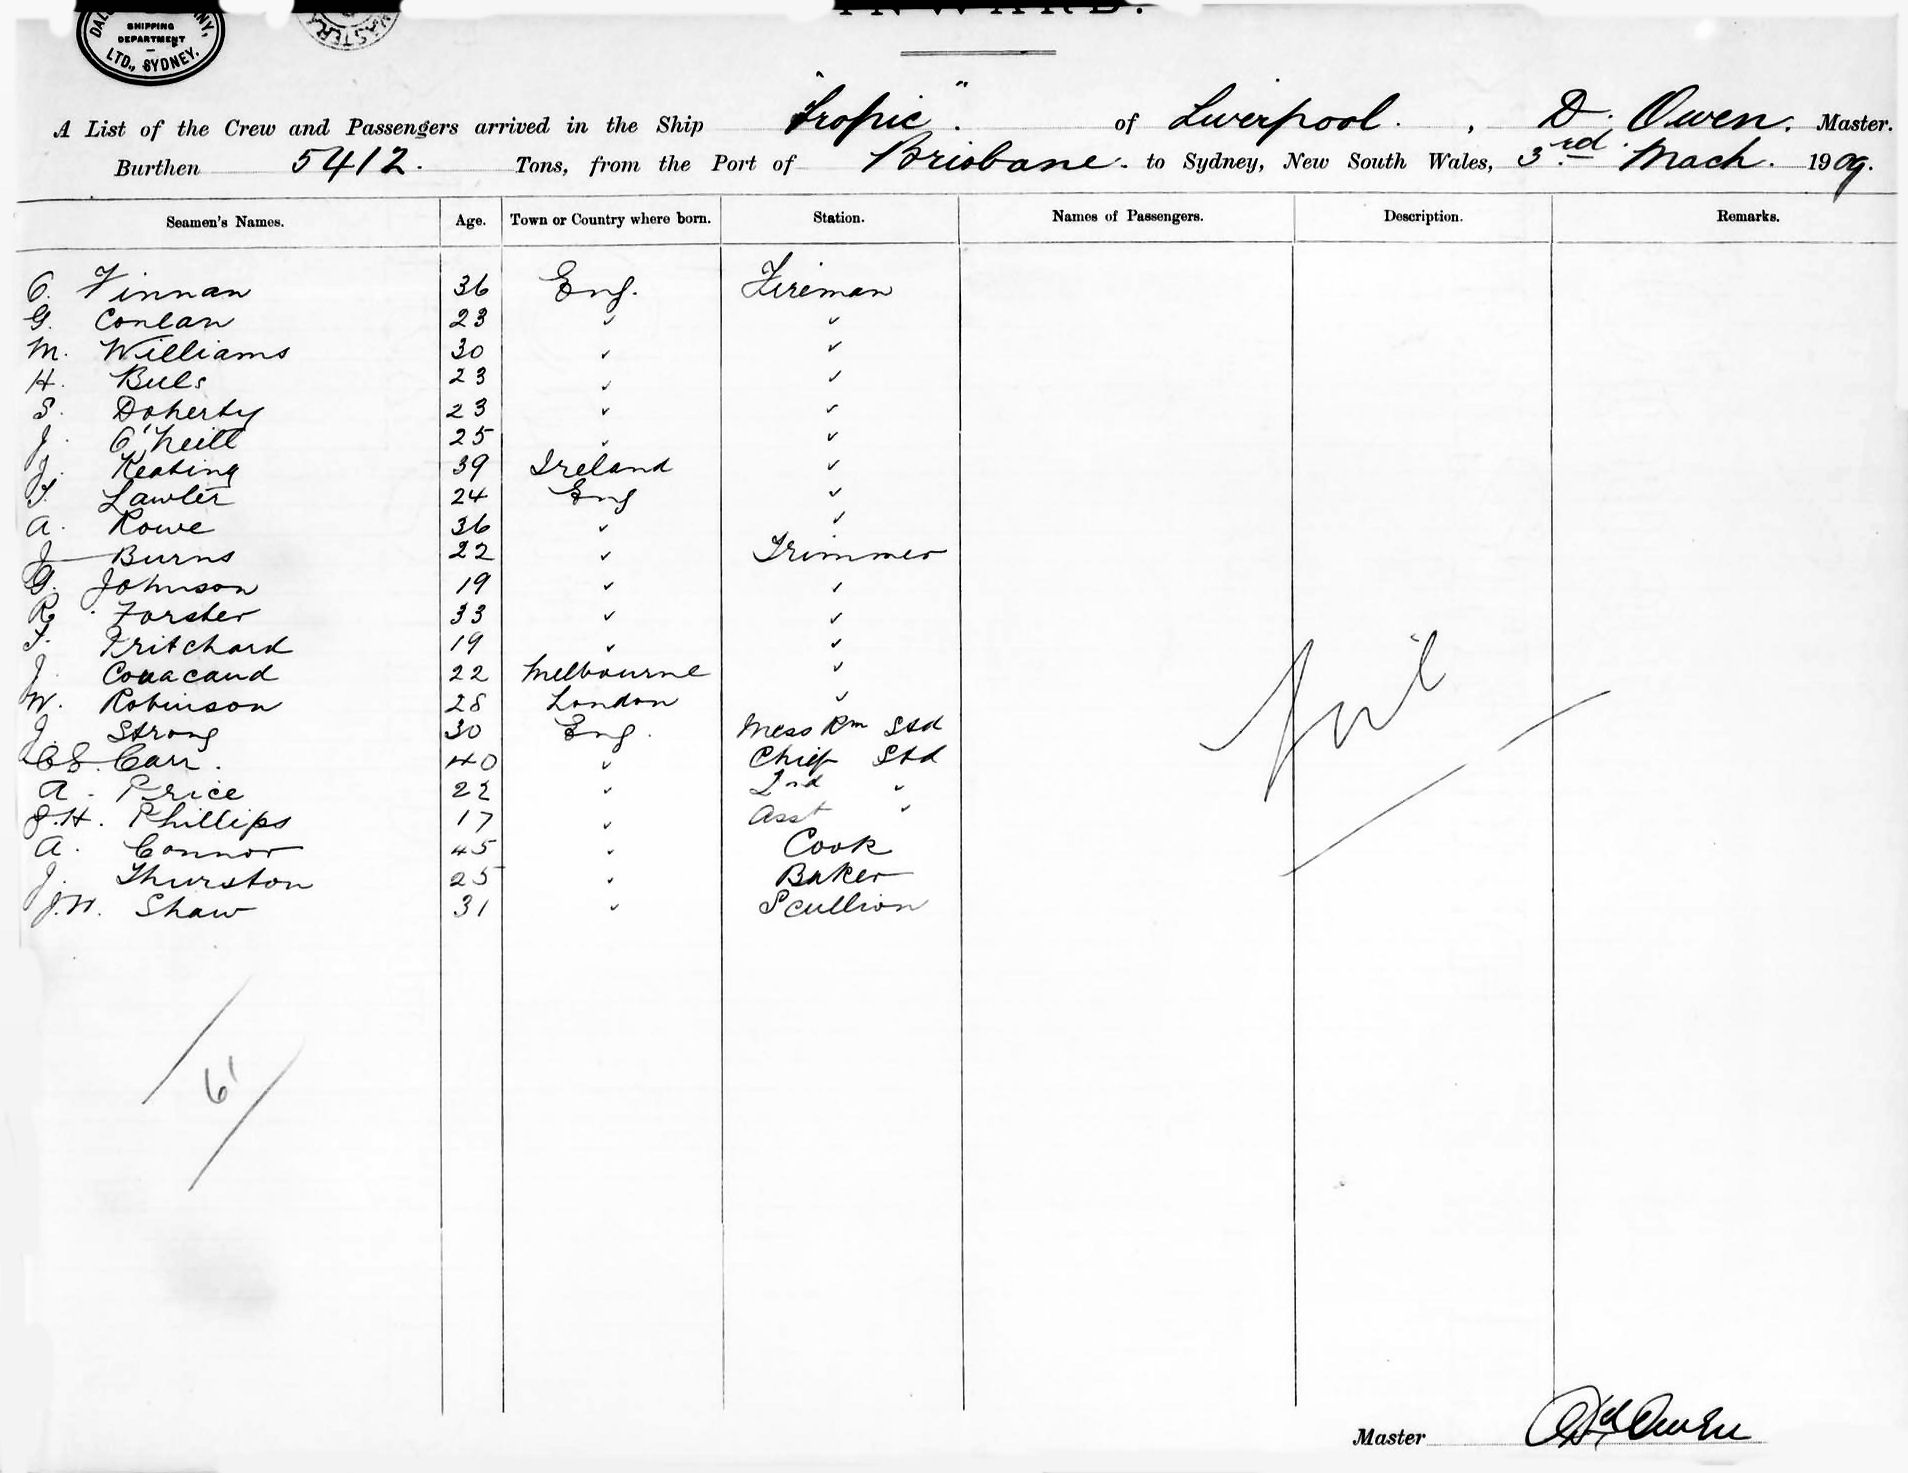 SHIPPING
DEPARTMENT
LTD., SYDNEY.
INWARD.
A List of the Crew and Passengers arrived in the Ship "Tropic". of Liverpool. , D. Owen. Master.
Burthen 5412. Tons, from the Port of Brisbane. to Sydney, New South Wales, 3rd. Mach. 1909.
Seamen's Names. Age. Town or Country where born. Station. Names of Passengers. Description. Remarks.
C. Finnan 36 Eng. Fireman
G. Conlan 23 " "
M. Williams 30 " "
H. Buls 23 " "
S. Doherty 23 " "
J. O'Neill 25 " "
J. Keating 39 Ireland "
T. Lawler 24 Eng "
A. Rowe 36 " "
J Burns 22 " Trimmer
G. Johnson 19 " "
R. Forster 33 " "
T. Pritchard 19 " "
J. Couacaud 22 Melbourne "
W. Robinson 28 London "
J. Strong 30 Eng. Mess Rm Std
C.S. Carr. 40 " Chief Std
A. Price 22 " 2nd "
J.H. Phillips 17 " Asst "
A. Connor 45 " Cook
J. Thurston 25 " Baker
J.W. Shaw 31 " Scullion
Nil
61
Master Owen